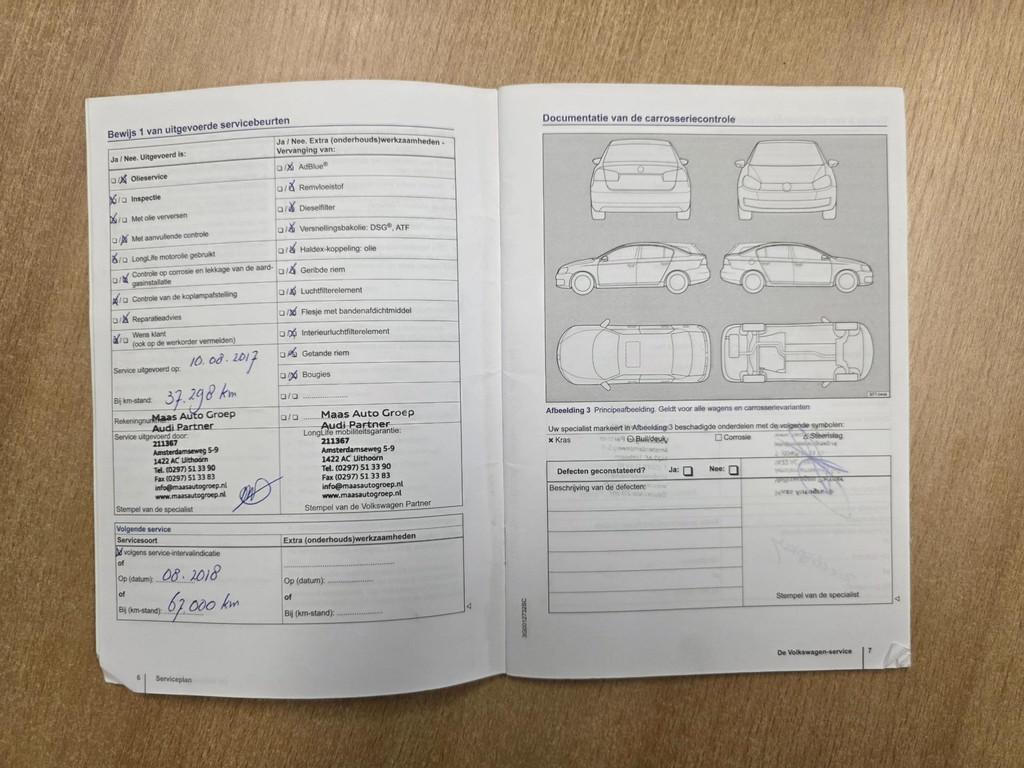 Bewijs 1 van uitgevoerde servicebeurten
Ja / Nee. Uitgevoerd is:
Olieservice
Inspectie
Met olie verversen
Met aanvullende controle
LongLife motorolie gebruikt
Controle op corrosie en lekkage van de aard-
gasinstallatie
Controle van de koplampafstelling
Reparatieadvies
Wens klant
(ook op de werkorder vermelden)
Service uitgevoerd op: 10.08.2017
Bij km-stand: 37.298 km
Rekeningnummer
Service uitgevoerd door:
Maas Auto Groep
Audi Partner
211367
Amsterdamseweg 5-9
1422 AC Uithoorn
Tel. (0297) 51 33 90
Fax (0297) 51 33 83
info@maasautogroep.nl
www.maasautogroep.nl
Stempel van de specialist
Ja / Nee. Extra (onderhouds)werkzaamheden -
Vervanging van:
AdBlue®
Remvloeistof
Dieselfilter
Versnellingsbakolie: DSG®, ATF
Haldex-koppeling: olie
Geribde riem
Luchtfilterelement
Flesje met bandenafdichtmiddel
Interieurluchtfilterelement
Getande riem
Bougies
Maas Auto Groep
Audi Partner
LongLife mobiliteitsgarantie:
211367
Amsterdamseweg 5-9
1422 AC Uithoorn
Tel. (0297) 51 33 90
Fax (0297) 51 33 83
info@maasautogroep.nl
www.maasautogroep.nl
Stempel van de Volkswagen Partner
Volgende service
Servicesoort
volgens service-intervalindicatie
of
Op (datum): 08.2018
of
Bij (km-stand): 67.000 km
Extra (onderhouds)werkzaamheden
Op (datum):
of
Bij (km-stand):
6 Serviceplan
Documentatie van de carrosseriecontrole
Afbeelding 3 Principeafbeelding. Geldt voor alle wagens en carrosserievarianten
Uw specialist markeert in Afbeelding 3 beschadigde onderdelen met de volgende symbolen:
x Kras Buil/deuk Corrosie Steenslag
Defecten geconstateerd? Ja: Nee:
Beschrijving van de defecten:
Stempel van de specialist
3G0012732BC
De Volkswagen-service 7